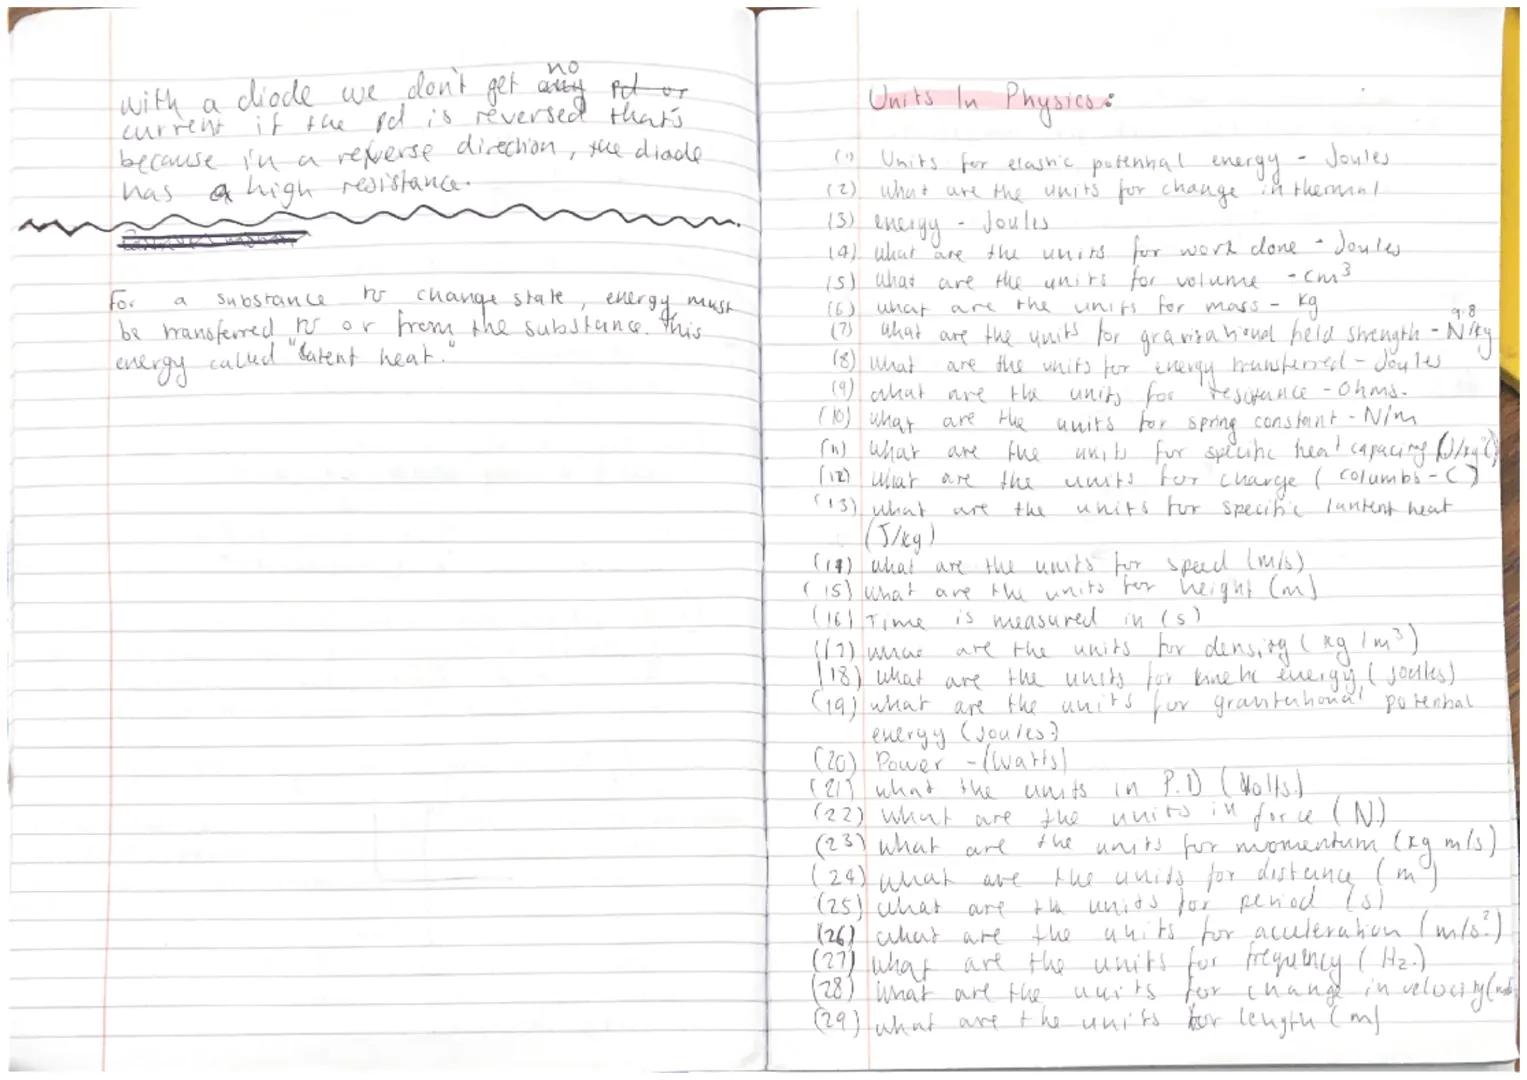 with a diode we don't get no pd or
current if the pd is reversed that's
because in a reverse direction, the diode
has a high resistance.
For a substance to change state, energy must
be transferred to or from the substance. This
energy called "latent heat."
Units In Physics:
(1) Units for elastic potential energy - Joules
(2) what are the units for change in thermal
(3) energy - Joules
(4) what are the units for work done - Joules
(5) what are the units for volume - cm³
(6) what are the units for mass - kg
(7) what are the units for gravitational field strength - 9.8 N/kg
(8) what are the units for energy transferred - Joules
(9) what are the units for resistance - Ohms.
(10) what are the units for spring constant - N/m
(11) what are the units for specific heat capacity (J/kg°C)
(12) what are the units for charge (columbs - C)
(13) what are the units for specific lantent heat
(J/kg)
(14) what are the units for speed (m/s)
(15) what are the units for height (m)
(16) Time is measured in (s)
(17) what are the units for density (kg/m³)
(18) what are the units for kinetic energy (joules)
(19) what are the units for gravitational potential
energy (Joules)
(20) Power - (Watts)
(21) what the units in P.D (Volts.)
(22) what are the units in force (N.)
(23) what are the units for momentum (kg m/s)
(24) what are the units for distance (m)
(25) what are the units for period (s)
(26) what are the units for acceleration (m/s²)
(27) what are the units for frequency (Hz.)
(28) what are the units for change in velocity (m/s
(29) what are the units for length (m)